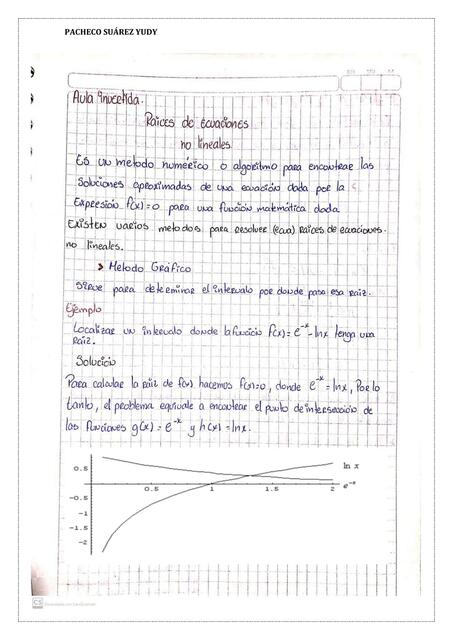 PACHECO SUÁREZ YUDY
Aula invertida.
Raices de ecuaciones
no lineales
Es un metodo numérico o algoritmo para encontrar las
soluciones aproximadas de una ecuación dada por la
Expresión f(x)=0 para una función matemática dada.
Existen varios metodos para resolver (ecua) Raices de ecuaciones
no lineales.
> Metodo Gráfico
Sirve para determinar el intervalo por donde pasa esa raiz.
Ejemplo
Localizar un intervalo donde la función f(x)= e^-x - lnx tenga una
raiz.
Solución
Para calcular la raiz de f(x) hacemos f(x)=0, donde e^-x = lnx, Por lo
tanto, el problema equivale a encontrar el punto de intersección de
las funciones g(x) = e^-x y h(x) = lnx.
0.5 ln x
0.5 1 1.5 2 e^-x
-0.5
-1
-1.5
-2
CS